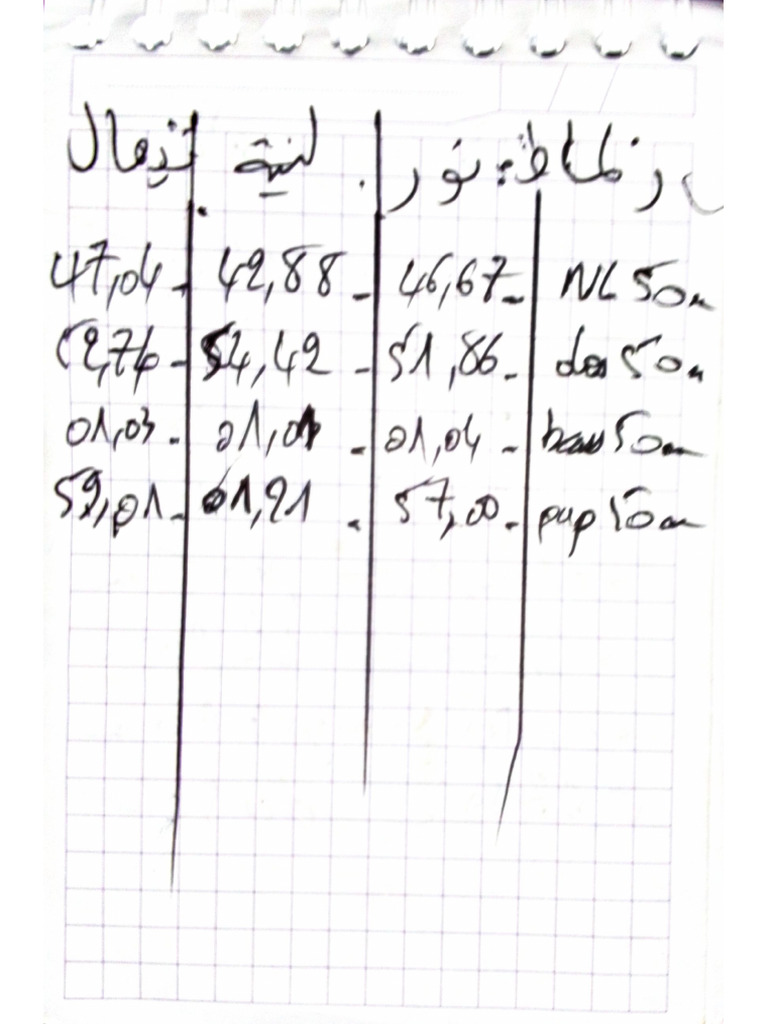 نور لنية نذهال
NL 50m 46,67 - 42,88 - 47,04
dos 50m 51,86 - 54,42 - 52,76
50m 01,04 - 01,01 - 01,03
pap 50m 57,00 - 01,21 - 59,01